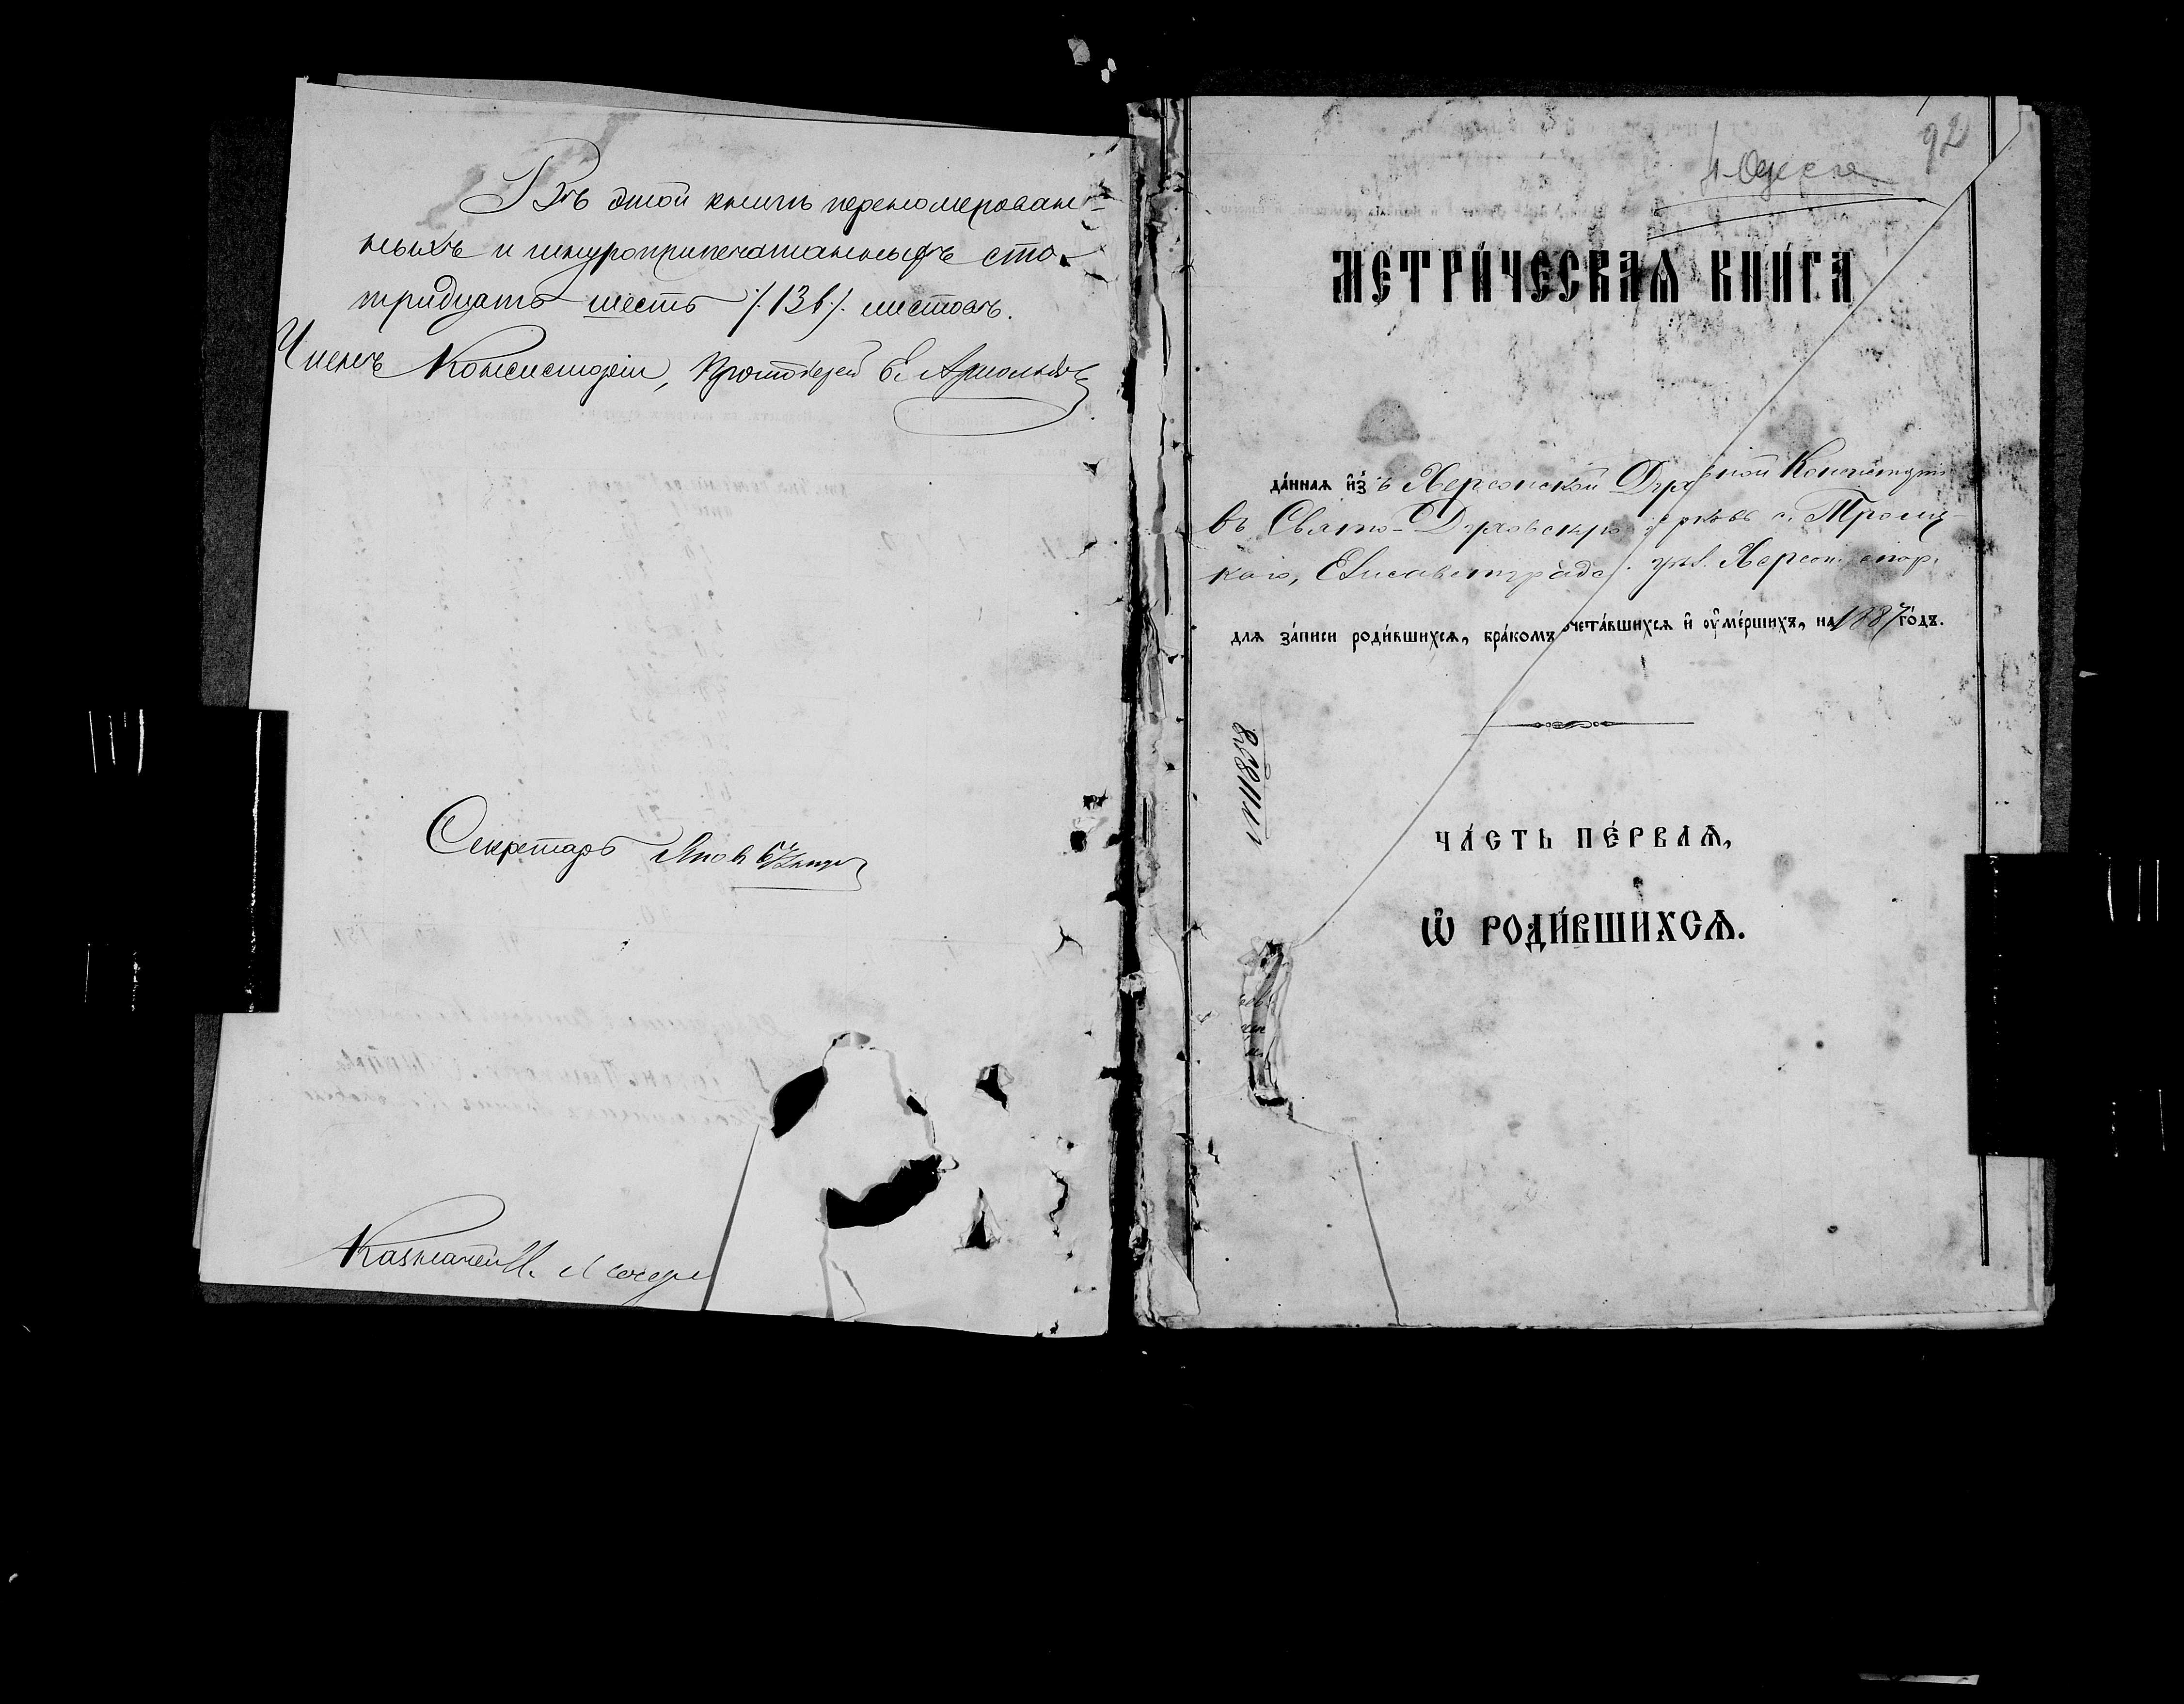 Въ этой книгѣ переномерован-
ныхъ и шнуроприпечатанныхъ сто
тридцать шесть /:136:/ листовъ.
Членъ Консисторіи, Протоіерей
Секретарь
Казначей
92
г. Одесса
МЕТРИ́ЧЕСКАѦ КНИ́ГА
да́ннаѧ и҆з̾ Херсонской Духовной Консисторіи
въ Свято-Духовскую церковь с. Троиц-
каго, Елисаветградс. уѣз. Херсон. епар.
длѧ за́писи роди́вшихсѧ, бра́комъ сочета́вшихсѧ и҆ ᲂу҆ме́ршихъ, на 1887 го́дъ.
№ 11858
ЧА́СТЬ ПЕ́РВАѦ,
Ѡ҆ РОДИ́ВШИХСѦ.